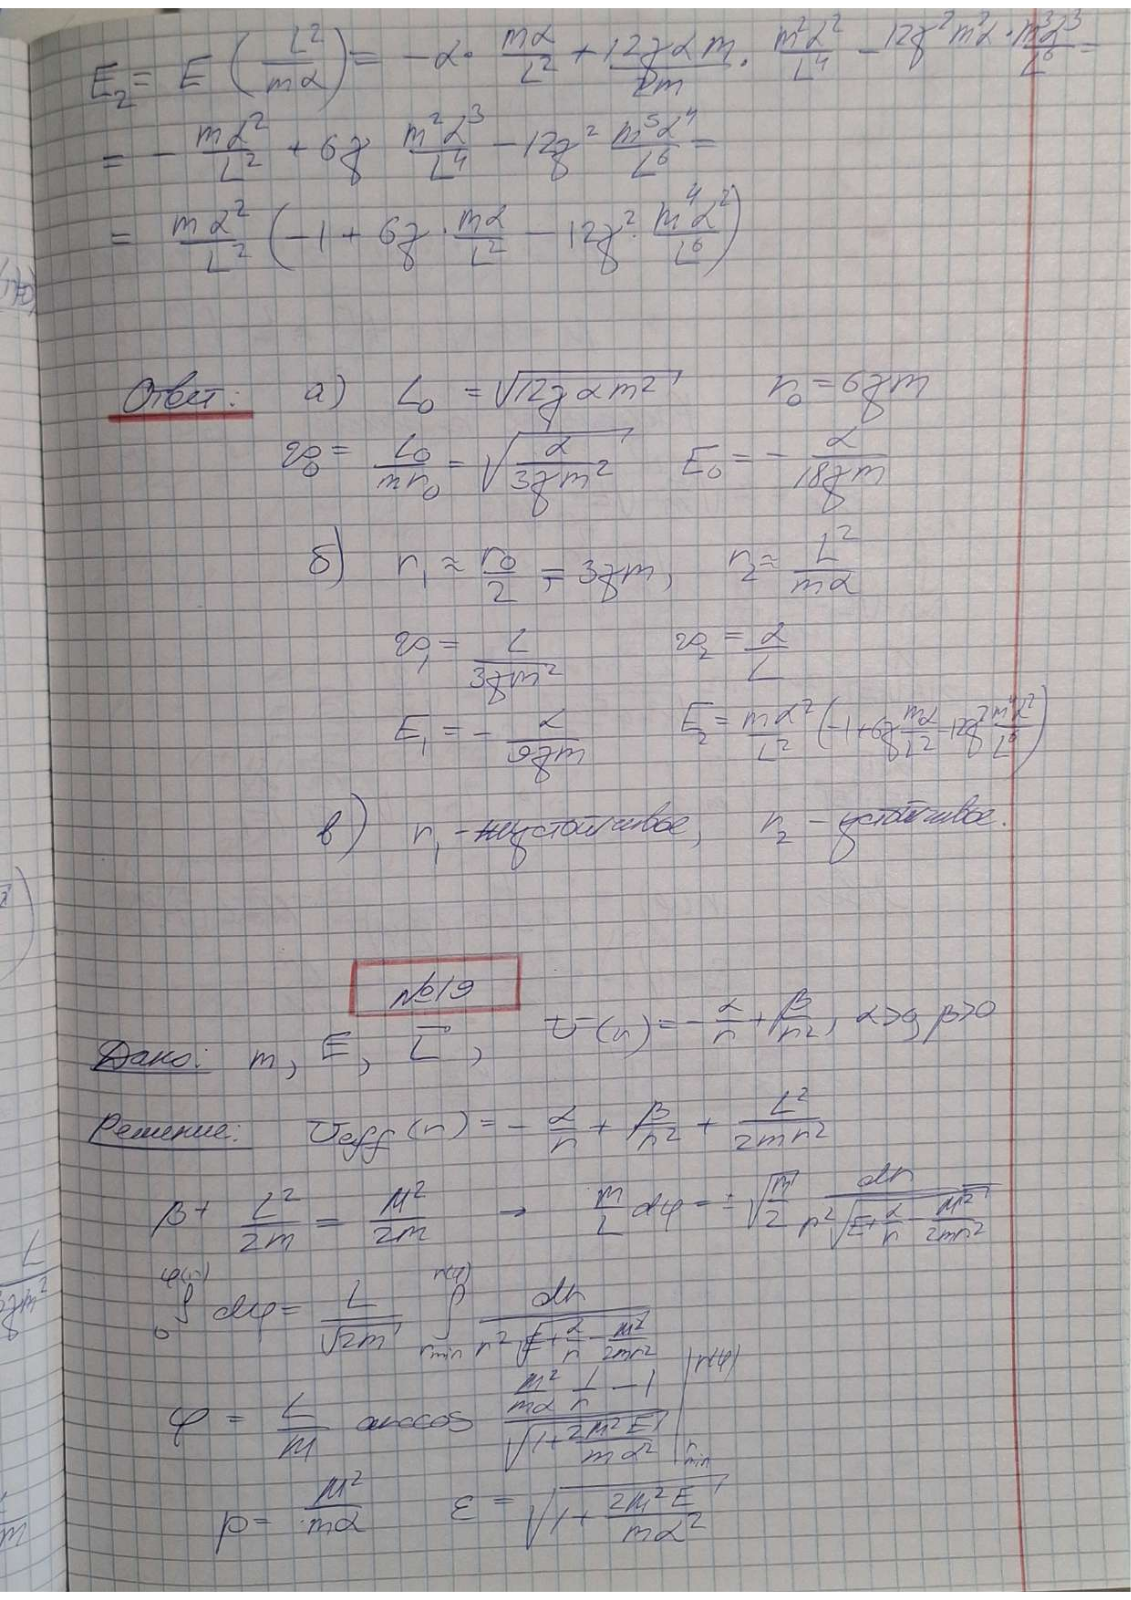 E₂ = E (L²/mα) = -α · mα/L² + 12γαm/2m · m²α²/L⁴ - 12γ²m²α · m³α³/L⁶ =
= - mα²/L² + 6γ m²α³/L⁴ - 12γ² m⁵α⁴/L⁶ =
= mα²/L² (-1 + 6γ · mα/L² - 12γ² · m⁴α²/L⁶)
Ответ: а) L₀ = √(12γαm²) r₀ = 6γm
v₀ = L₀/mr₀ = √(α/3γm²) E₀ = - α/18γm
б) r₁ ≈ r₀/2 = 3γm, r₂ ≈ L²/mα
v₁ = L/3γm² v₂ = α/L
E₁ = - α/9γm E₂ = mα²/L² (-1 + 6γ mα/L² - 12γ² m⁴α²/L⁶)
в) r₁ - неустойчивое, r₂ - устойчивое.
№19
Дано: m, E, L⃗, U(r) = - α/r + β/r², α>0, β>0
Решение: U_eff(r) = - α/r + β/r² + L²/2mr²
β + L²/2m = M²/2m → m/L dφ = ± √(m/2) dr/(r²√(E + α/r - M²/2mr²))
∫₀^φ(r) dφ = L/√(2m) ∫_rmin^r(φ) dr/(r²√(E + α/r - M²/2mr²))
φ = L/M arccos (M²/mα · 1/r - 1)/√(1 + 2M²E/mα²) |_rmin^r(φ)
p = M²/mα ε = √(1 + 2M²E/mα²)